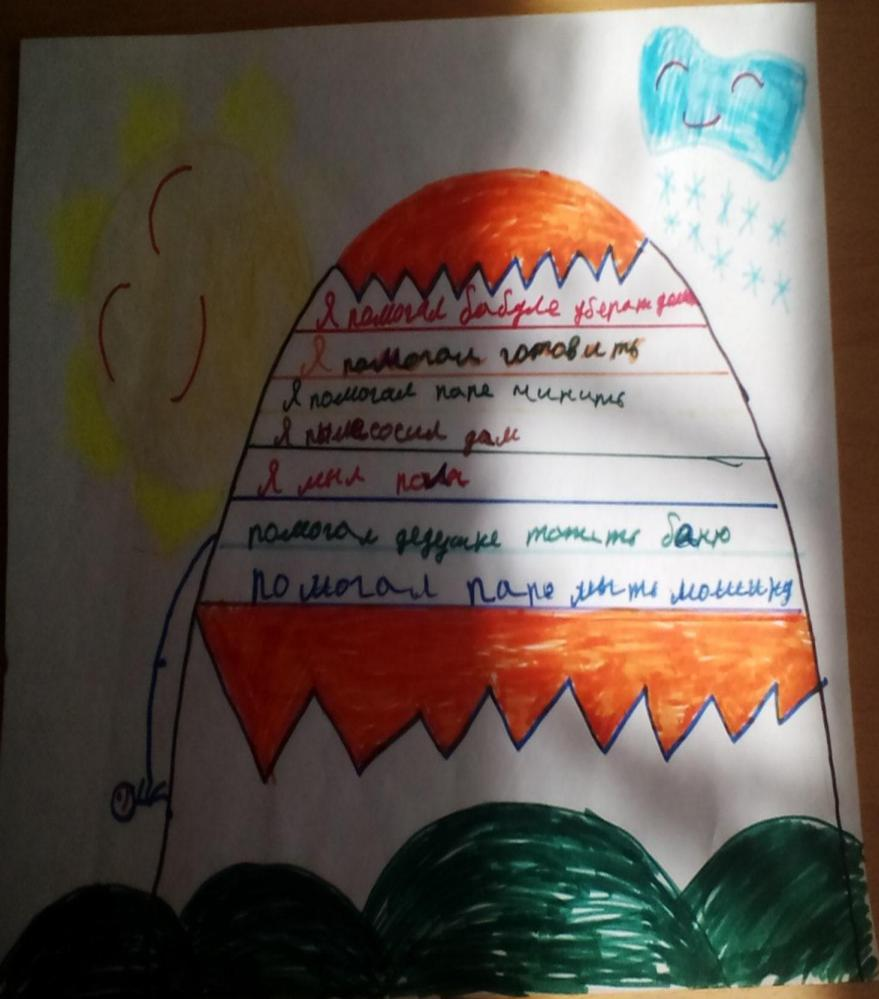 Я помогал бабуле уберат дома
Я помогал готовить
Я помогал папе чинить
Я пылесосил дом
Я мыл пола
помогал дедушке топить баню
помогал папе мыть мошину